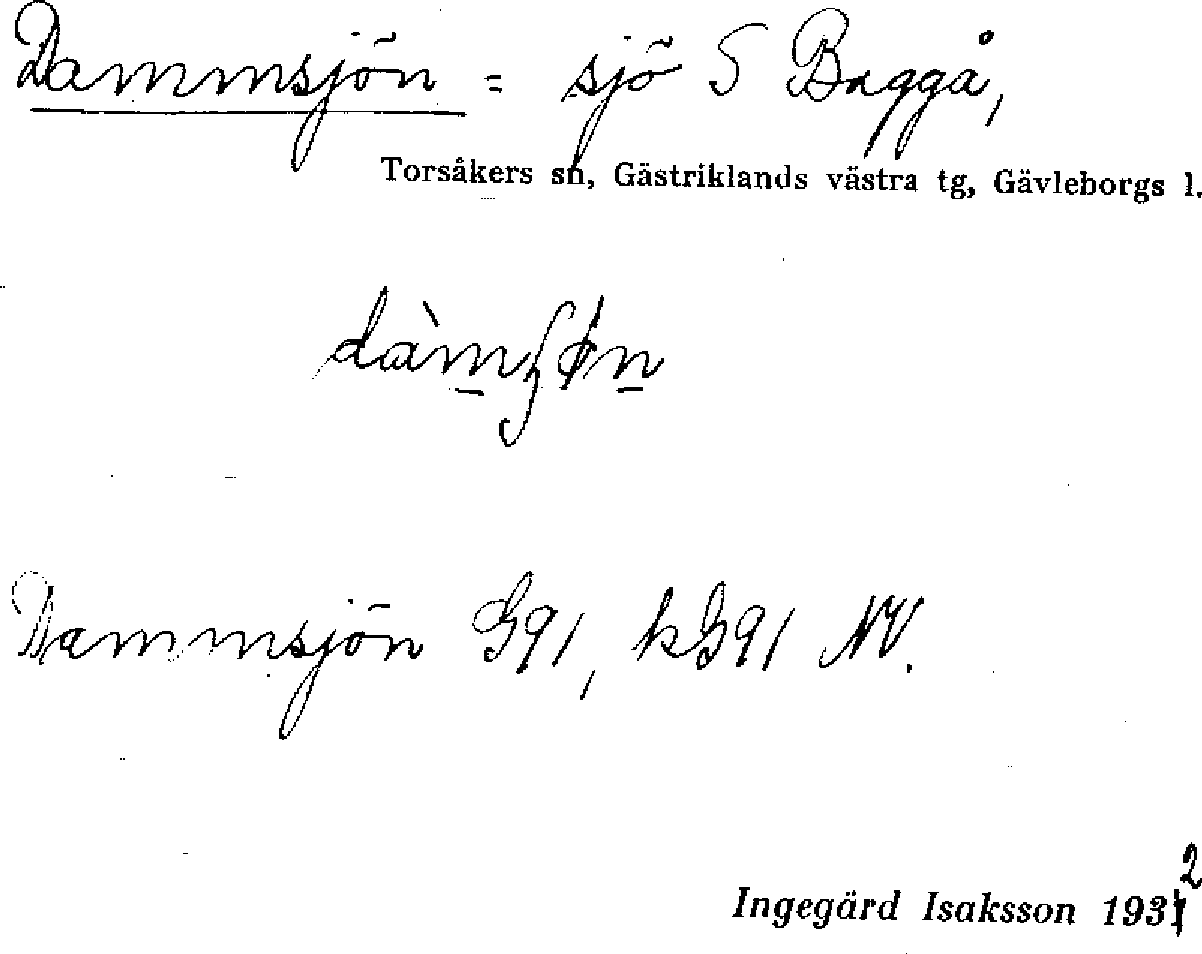 Dammsjön = sjö S Baggå,
Torsåkers sn, Gästriklands västra tg, Gävleborgs l.
Dammsjön G91, kG91 NV.
Ingegärd Isaksson 1932